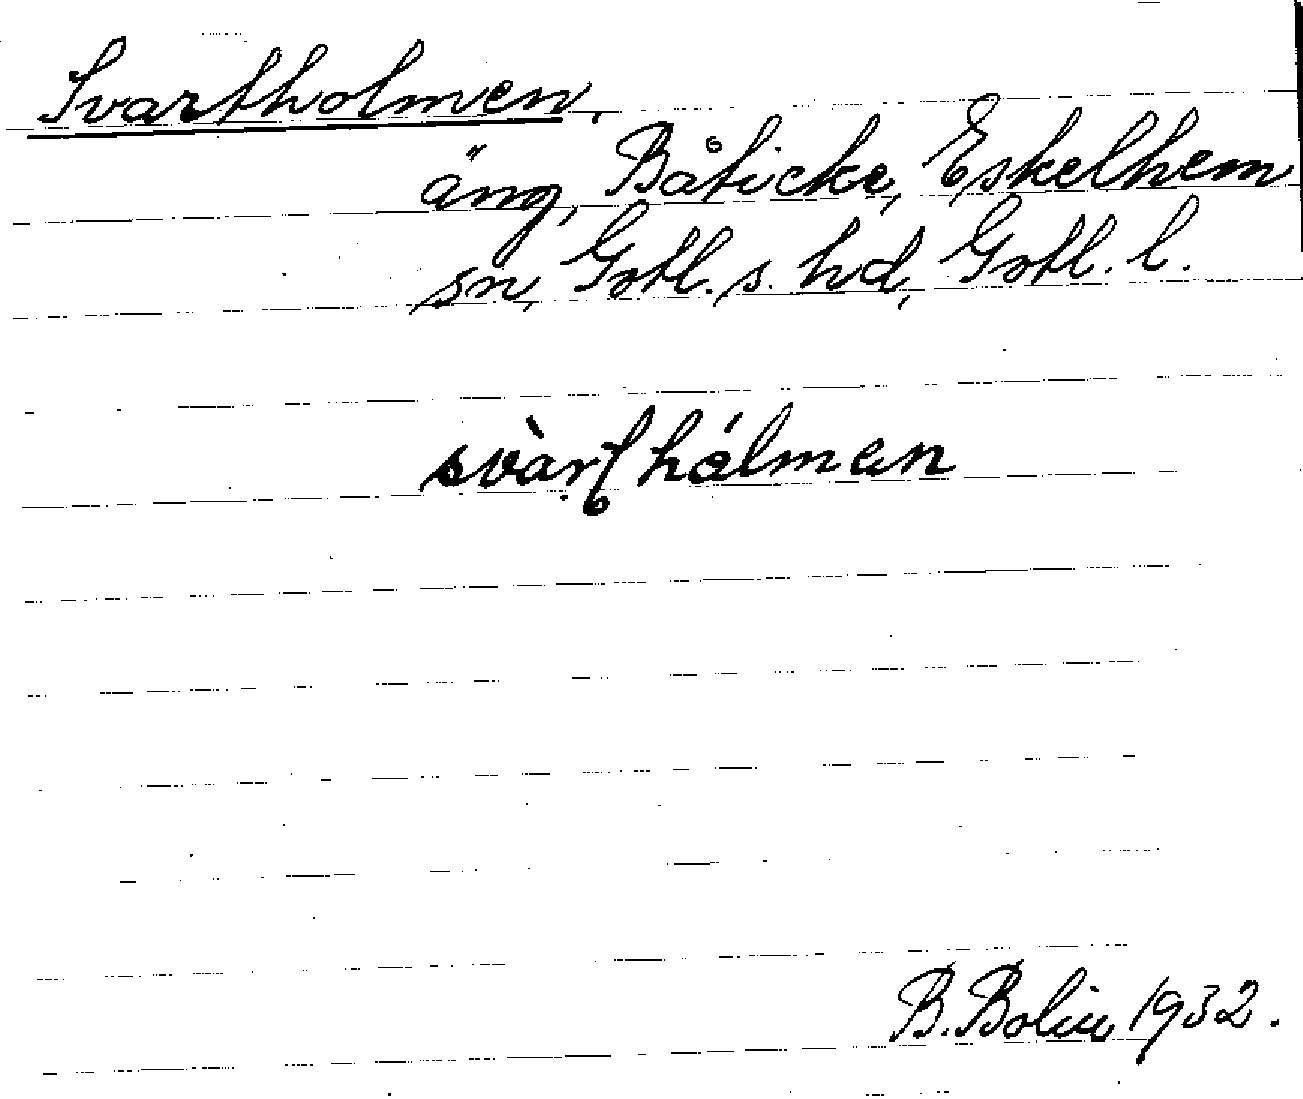 Svartholmen,
äng, Båticke, Eskelhem
sn, Gotl. s. hd, Gotl. l.
svàrt hálmen
B. Bolin 1932.